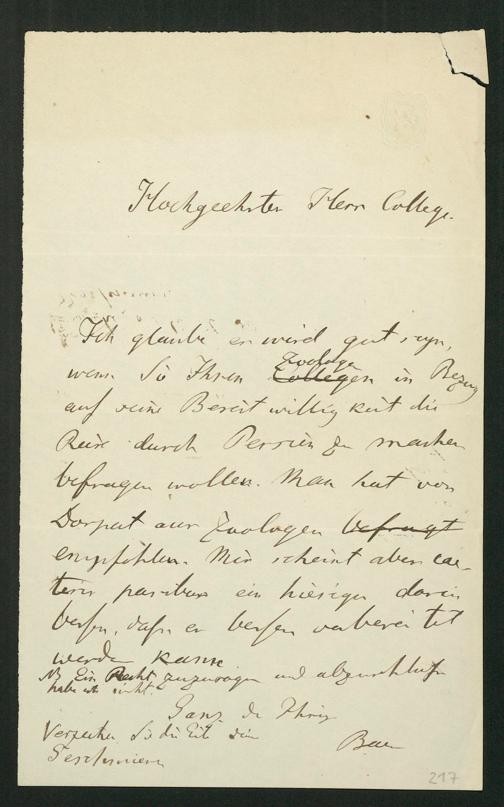 Hochgeehrter Herr College.
Ich glaube es wird gut seyn,
wenn Sie Ihren Collegen Zoologen in Bezug
auf seine Bereitwilligkeit die
Reise durch Persien zu machen
befragen wollen. Man hat von
Dorpat aus Zoologen befragt
empfohlen. Mir scheint aber cae-
teris paribus ein hiesiger darin
besser, dass er besser vorbereitet
werden kann
NB Ein Recht zuzusagen und abzuschliessen
habe ich nicht.
Ganz der Ihrige
Verzeihen Sie die Eile
Baer
217